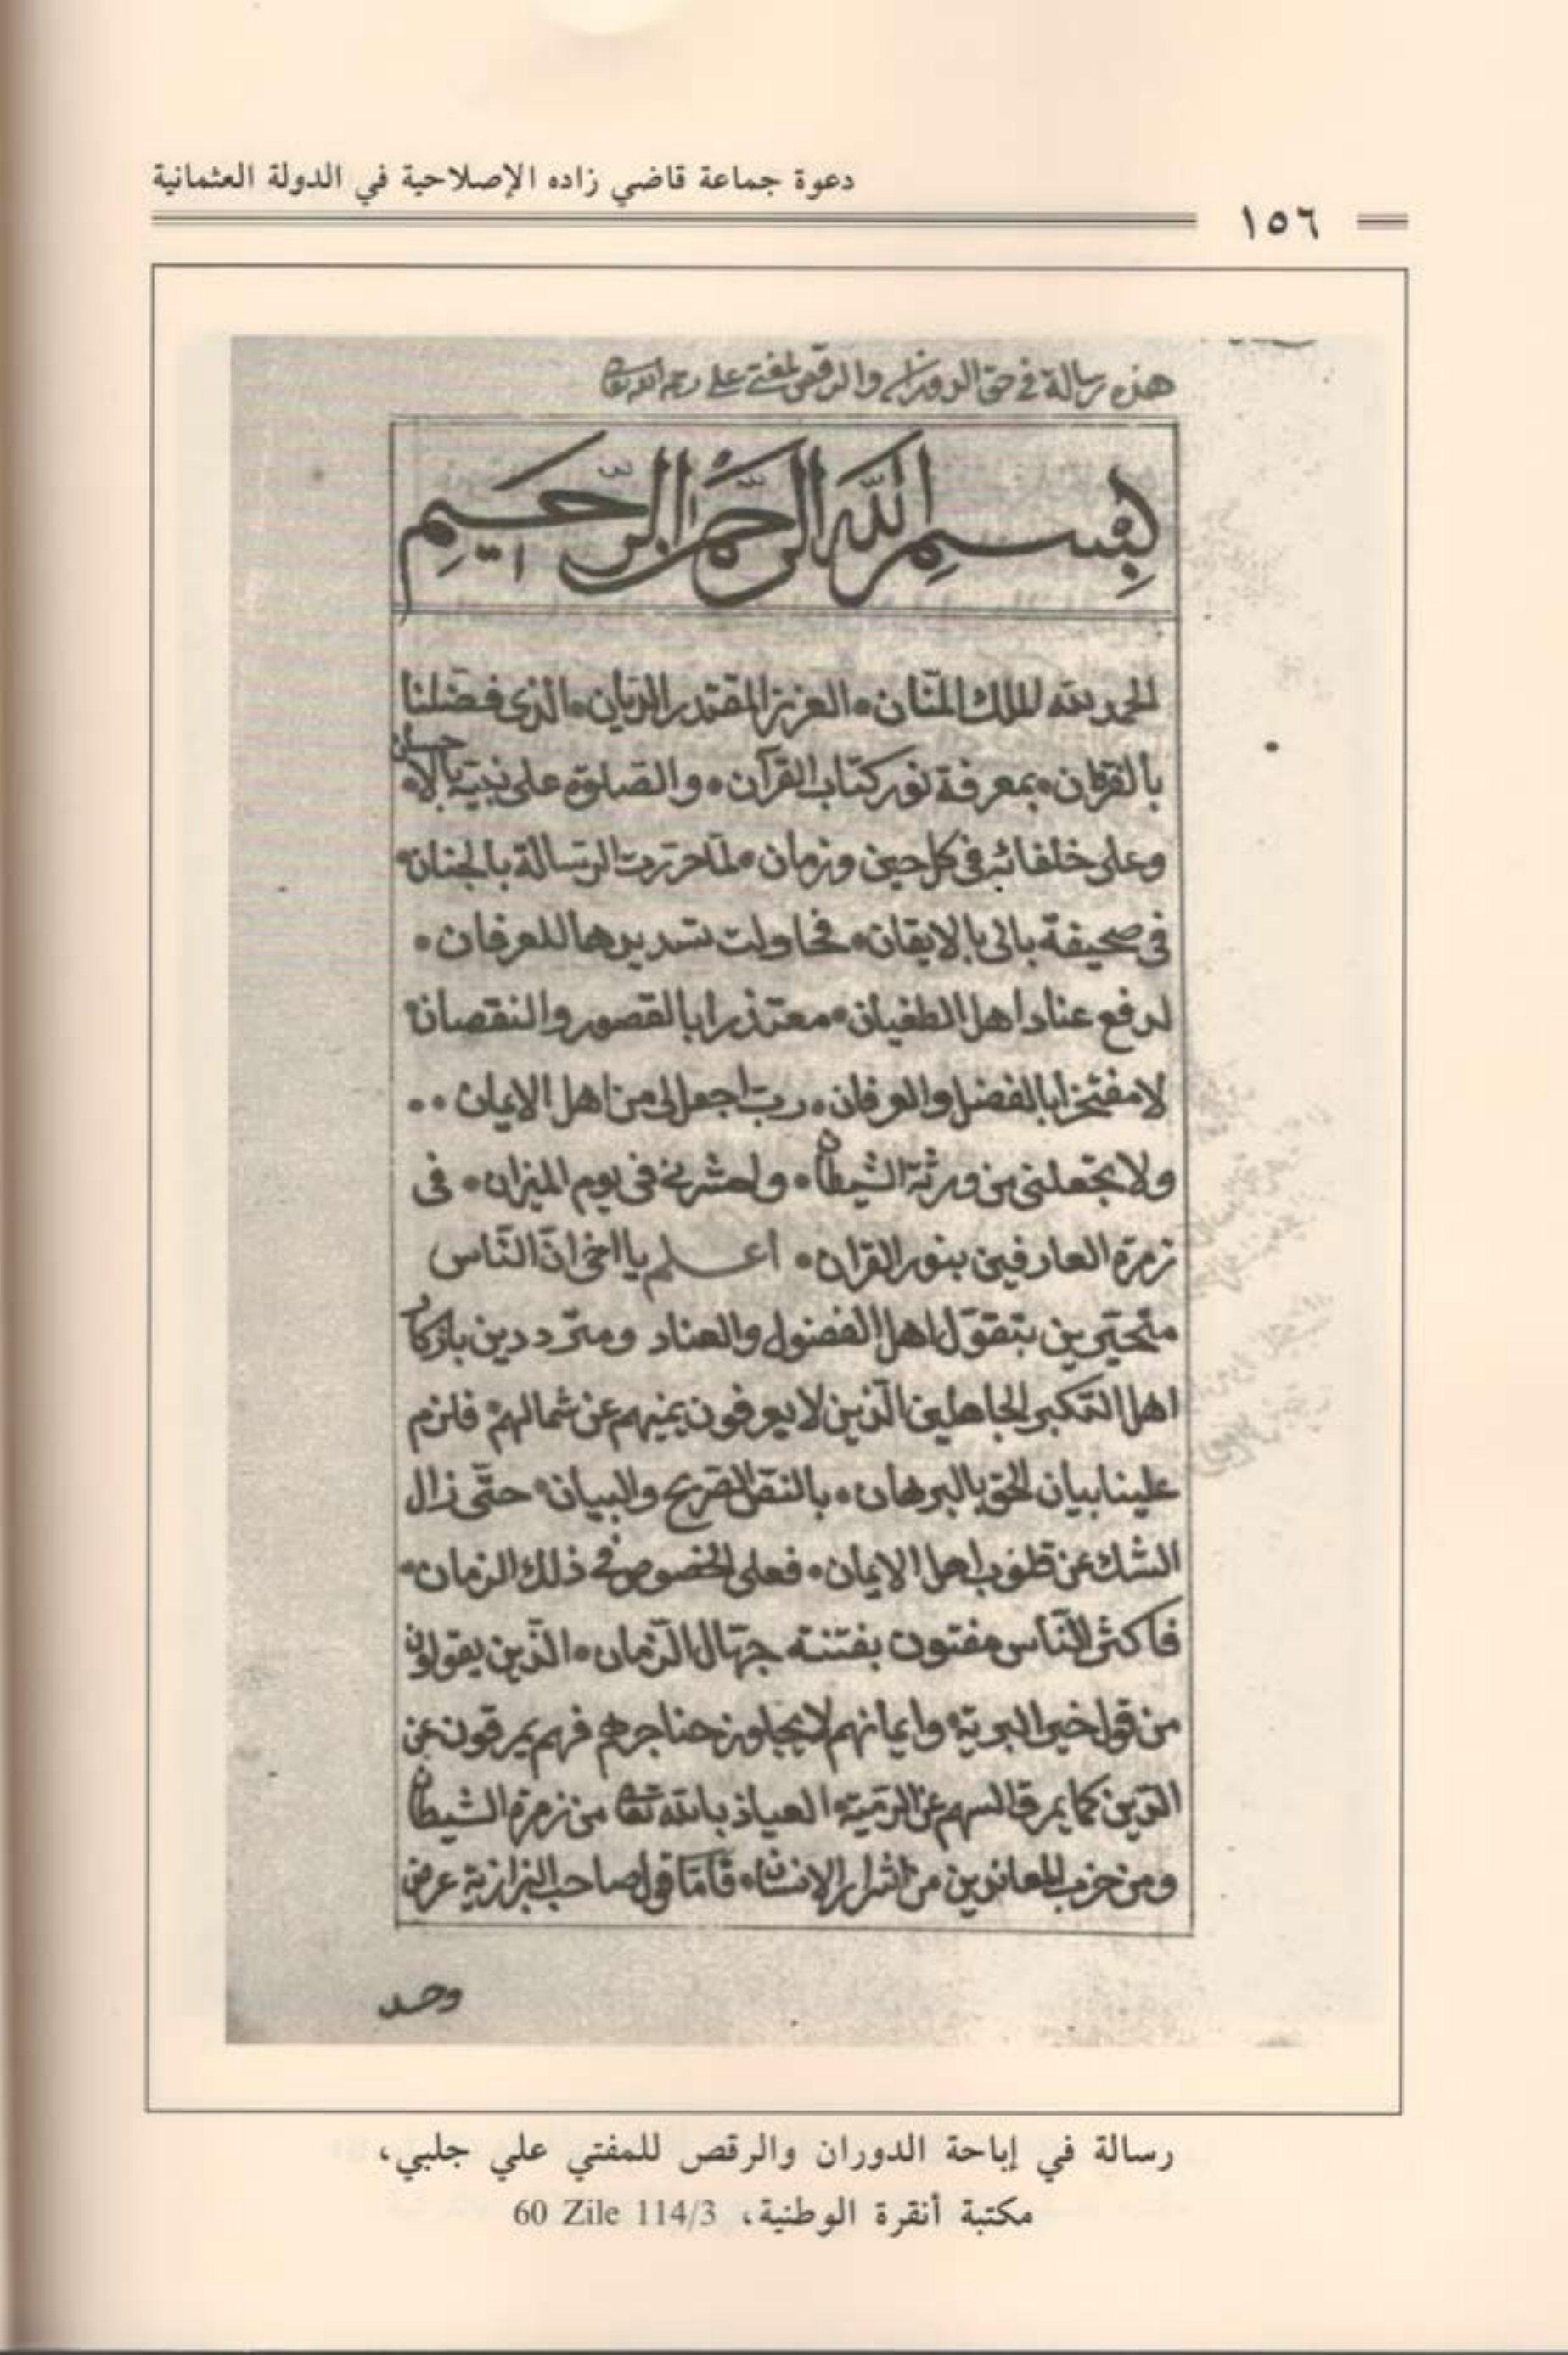 دعوة جماعة قاضي زاده الإصلاحية في الدولة العثمانية
١٥٦
هذه رسالة في حق الدوران والرقص لمفتي علي رحمه الله تعالى
بِسْمِ اللَّهِ الرَّحْمٰنِ الرَّحِيمِ
الحمد لله الملك المنّان • العزيز المقتدر الديّان • الذى فضّلنا
بالفرقان • بمعرفة نور كتاب القرآن • والصلوة على نبيّه بالاحسان
وعلى خلفائه فى كل حين وزمان • لمّا حرّرت الرسالة بالجنان •
فى صحيفة بالى بالايقان • فحاولت تسديدها للعرفان •
لدفع عناد اهل الطغيان • معتذرا بالقصور والنقصان •
لا مفتخرا بالفضل والعرفان • ربّ اجعلنى من اهل الايمان • •
ولا تجعلنى من ورثة الشيطان • واحشرنى فى يوم الميزان • فى
زمرة العارفين بنور القران • اعلم يا اخى انّ النّاس
متحيّرين بتقوّل اهل الفضول والعناد ومتردّدين
اهل التكبر الجاهلين الّذين لا يعرفون يمينهم عن شمالهم • فلزم
علينا بيان الحق بالبرهان • بالنقل الصريح والبيان • حتّى زال
الشك عن قلوب اهل الايمان • فعلى الخصوص فى ذلك الزمان •
فاكثر النّاس مفتون بفتنة جهّال الزمان • الّذين يقولون
من قول خير البريّة • وايمانهم لا يجاوز حناجرهم فهم يمرقون عن
الدّين كما يمرق السهم عن الرّميّة • العياذ بالله تعالى من زمرة الشيطان
ومن حزب المعاندين من اشرار الانسان • فامّا قول صاحب البزازية عرض
وحد
رسالة في إباحة الدوران والرقص للمفتي علي جلبي،
مكتبة أنقرة الوطنية، 60 Zile 114/3